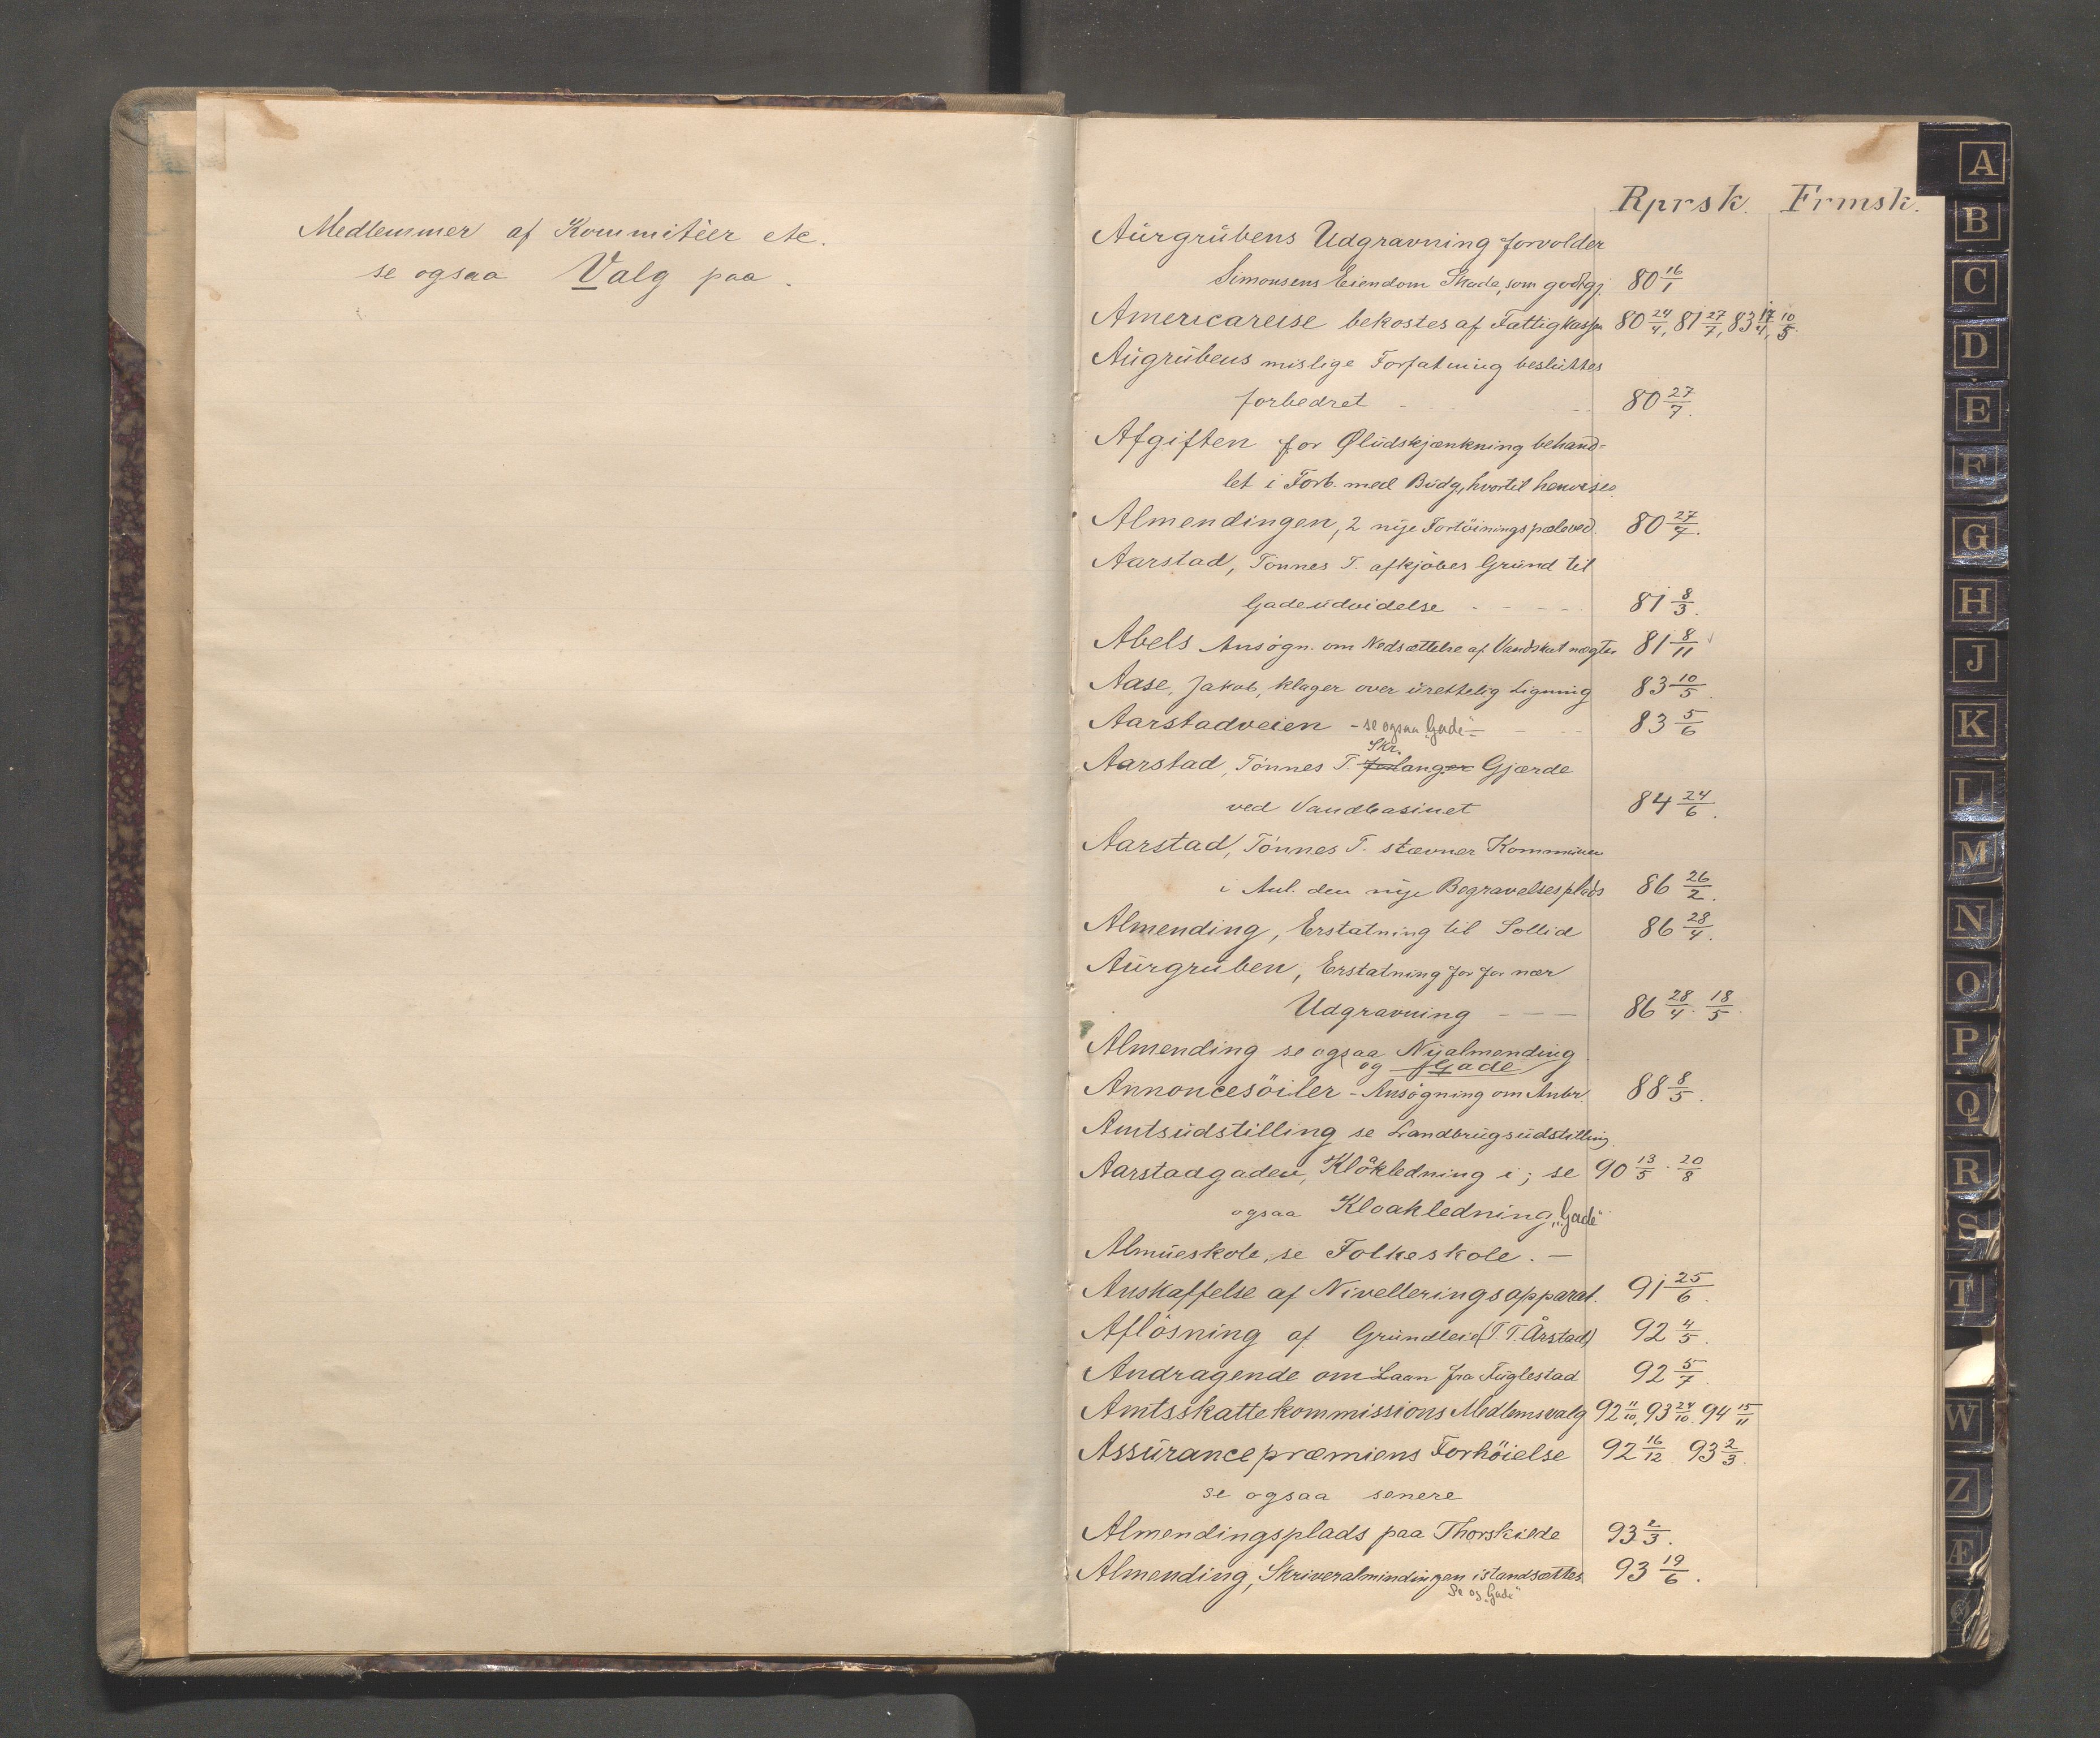 Medlemmer af Kommiteer etc.
se ogsaa Valg paa.
Rprsk. Frmsk.
Aurgrubens Udgravning forvolder
Simonsens Eiendom Skade, som godtgj. 80 16/1
Americareise bekostes af Fattigkassen 80 24/4, 81 27/7, 83 17/4, 10/5.
Augrubens mislige Forfatning besluttes
forbedret - - - 80 27/7.
Afgiften for Øludskjænkning behand-
let i Forb. med Budg, hvortil henvises.
Almendingen, 2 nye Fortöiningspæle ved. 80 27/7.
Aarstad, Tönnes T. afkjöbes Grund til
Gadeudvidelse - - - 81 8/3.
Abels Ansögn. om Nedsættelse af Vandskat nægtes 81 8/11
Aase, Jakob, klager over urettelig Ligning 83 10/5.
Aarstadveien - se ogsaa „Gade" - 83 5/6
Skr.
Aarstad, Tönnes T. forlanger Gjærde
ved Vandbasinet 84 24/6.
Aarstad, Tönnes T. stævner Kommunen
i Anl. den nye Begravelsesplads 86 26/2.
Almending, Erstatning til Sollid 86 28/4.
Aurgruben, Erstatning for for nær
Udgravning - - - 86 28/4. 18/5.
Almending se ogsaa Nyalmending.
og Gade
Annoncesöiler - Ansögning om Anbr. 88 8/5.
Amtsudstilling se Landbrugsudstilling.
Aarstadgaden, Kloakledning i; se 90 13/5. 20/8
ogsaa Kloakledning „Gade"
Almueskole, se Folkeskole. -
Anskaffelse af Nivelleringsapparat. 91 25/6.
Aflösning af Grundleie (T. T. Årstad) 92 4/5.
Andragende om Laan fra Fuglestad 92 5/7.
Amtsskattekommissions Medlemsvalg 92 11/10, 93 24/10. 94 15/11
Assurancepræmiens Forhöielse 92 16/12 93 2/3.
se ogsaa senere
Almendingsplads paa Thorskilde 93 2/3.
Almending, Skriveralmindingen istandsættes 93 19/6.
Se og „Gade"
A
B
C
D
E
F
G
H
J
K
L
M
N
O
P
Q
R
S
T
W
Z
Æ
Ø